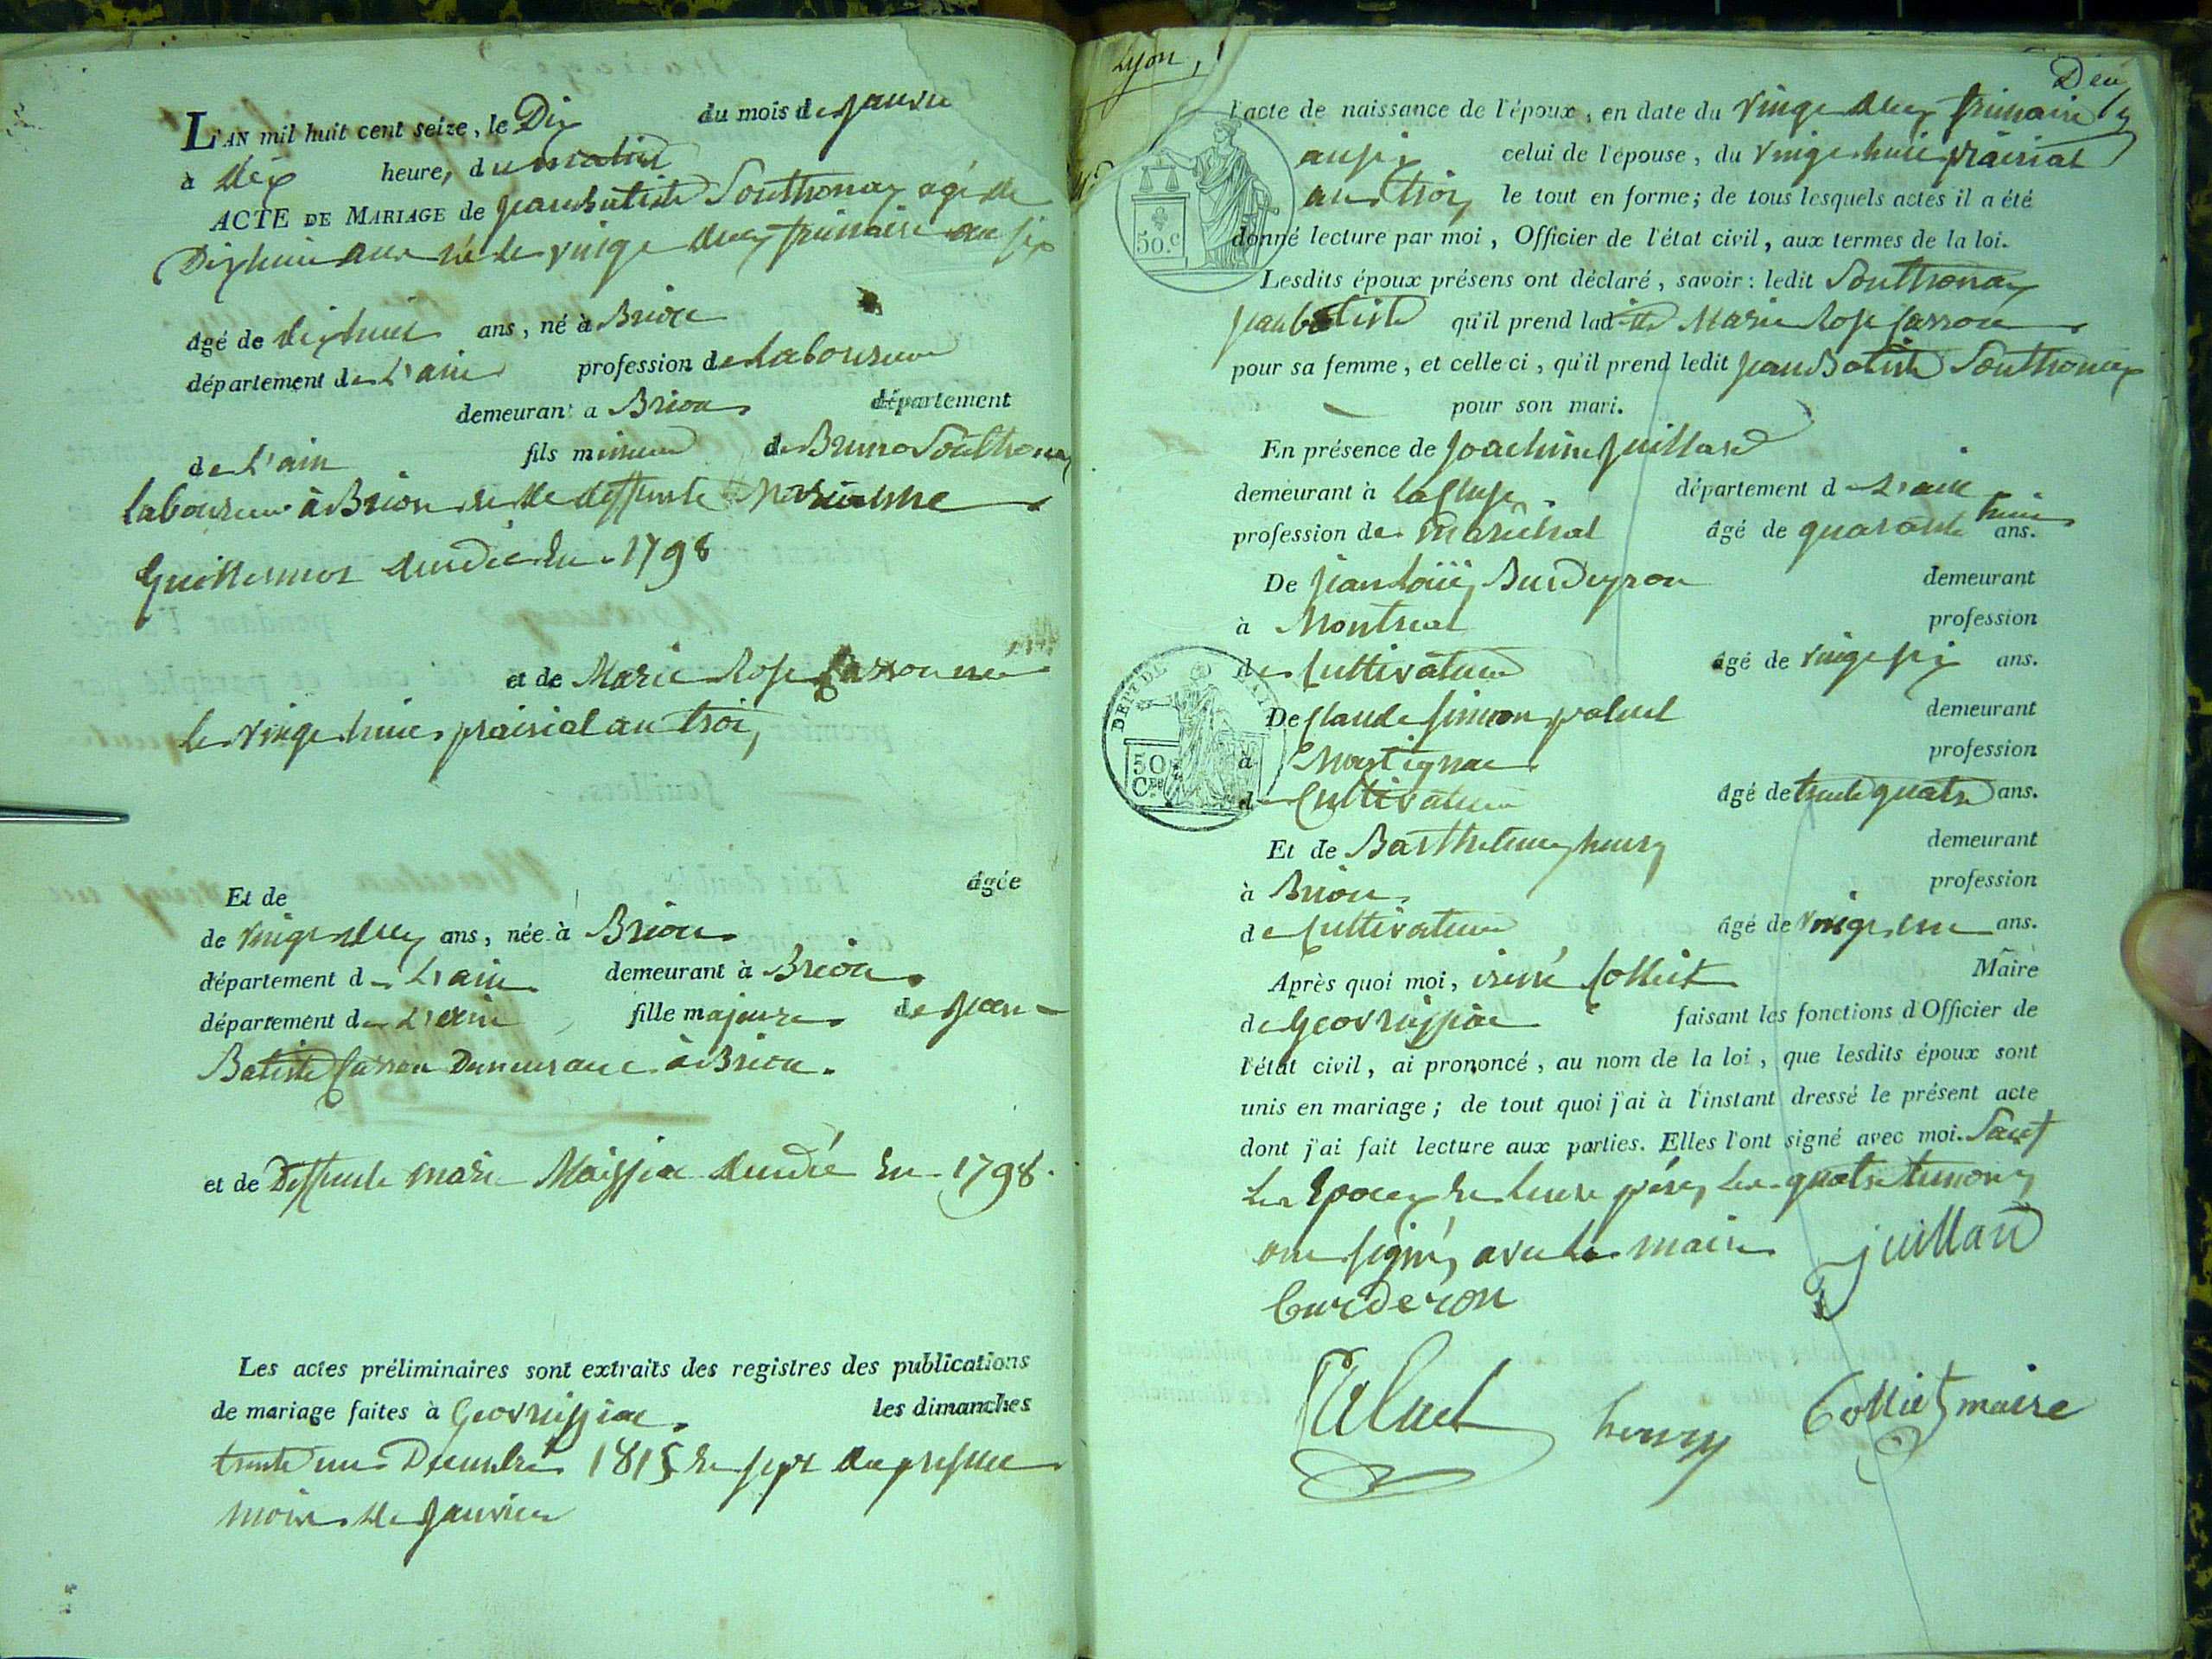 L'AN mil huit cent seize, le Dix du mois de Janvie
à dix heure, du matin
ACTE DE MARIAGE de Jean Batiste Southonax agé de
Dixhuit ans né le vingt deux frimaire an six
âgé de dixhuit ans, né à Brion
département de L'ain profession de Laboureur
demeurant a Brion département
de L'ain fils mineur de Bruno Southonax
laboureur à Brion et de deffunte Marianne
Guillermot decedée en 1798
et de Marie Rose Carron née
le vingt huit prairial an trois
Et de âgée
de vingt deux ans, née à Brion
département d L'ain demeurant à Brion
département de L'ain fille majeure de Jean
Batiste Carron Demeurant à Brion.
et de Deffunte marie Maissiat decedée en 1798.
Les actes préliminaires sont extraits des registres des publications
de mariage faites à Geovreissiat les dimanches
trente un Decembre 1815 et sept du present
mois de Janvier
Lyon,
Deux
l'acte de naissance de l'époux, en date du vingt deux frimaire
an six celui de l'épouse, du vingt huit prairial
an trois le tout en forme; de tous lesquels actes il a été
50.c
donné lecture par moi, Officier de l'état civil, aux termes de la loi.
Lesdits époux présens ont déclaré, savoir: ledit Southonax
Jean batiste qu'il prend ladite Marie Rose Carron
pour sa femme, et celle ci, qu'il prend ledit Jean Batiste Southonax
pour son mari.
En présence de Joachim Juillard
demeurant à La Cluse département d L'ain
profession de Marêchal âgé de quarante huit ans.
De Jean Louis Burdeyron demeurant
à Montreal profession
de Cultivateur âgé de vingt six ans.
DEPT DE L'AIN
De Claude Simon paluel demeurant
à Martignat profession
50 Ces
de Cultivateur âgé de trente quatre ans.
Et de Barthelemy henry demeurant
à Brion profession
de Cultivateur âgé de vingt un ans.
Après quoi moi, irené Colliet Maire
de Geovreissiat faisant les fonctions d'Officier de
l'état civil, ai prononcé, au nom de la loi, que lesdits époux sont
unis en mariage; de tout quoi j'ai à l'instant dressé le présent acte
dont j'ai fait lecture aux parties. Elles l'ont signé avec moi. Sauf
Les Epoux et leurs péres, Les quatre temoins
ont signés avec le maire juillard
burderon
Paluel henry Colliet maire